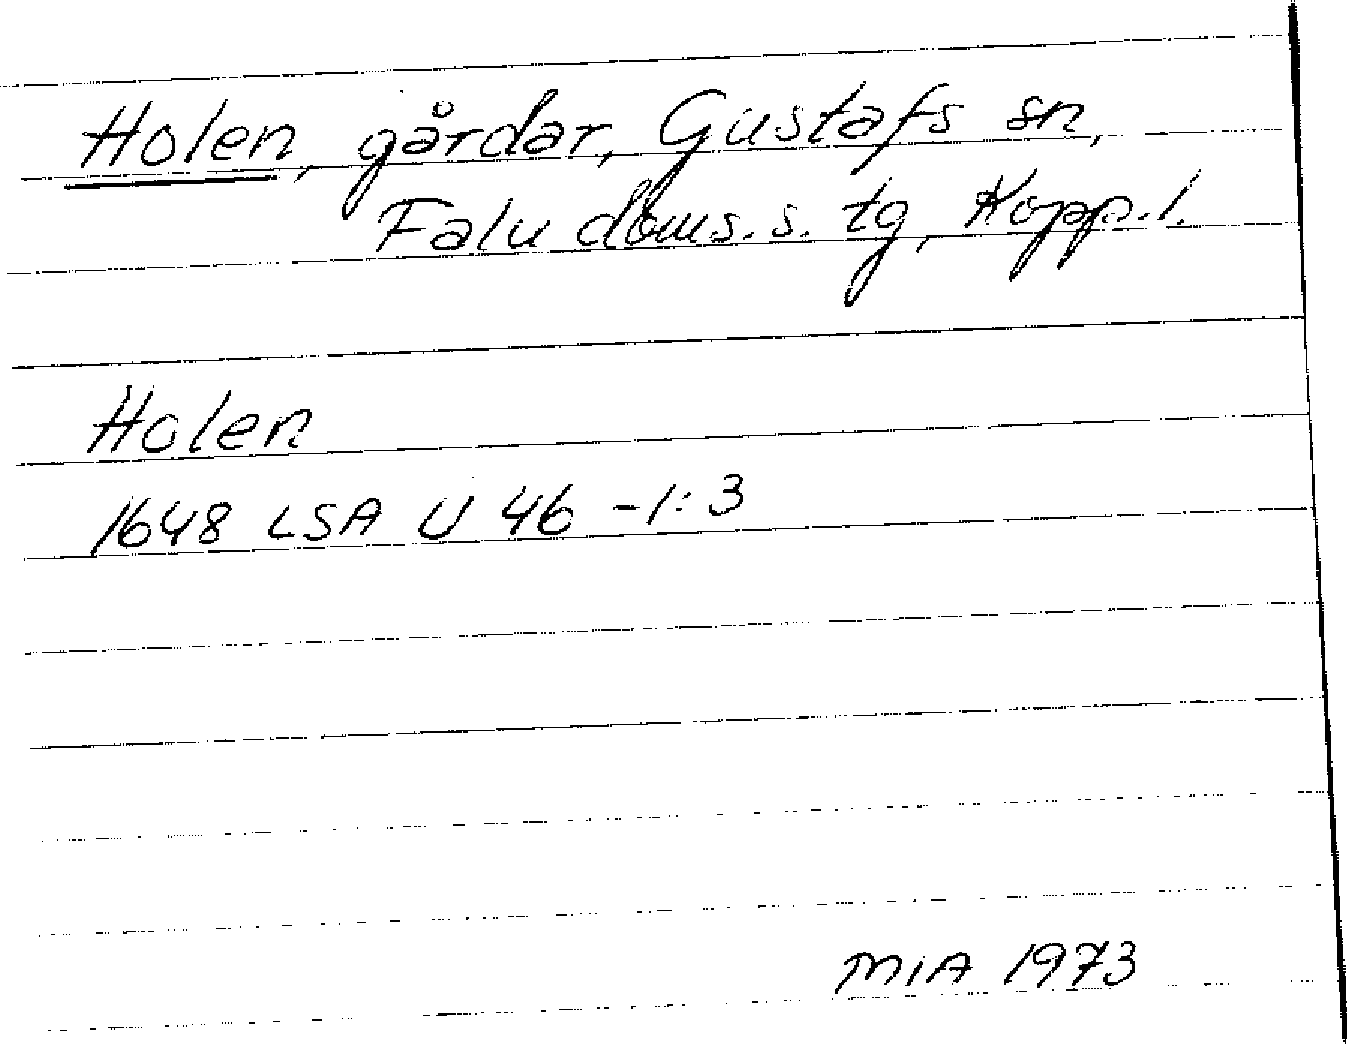 Holen, gårdar, Gustafs sn,
Falu doms.s. tg, Kopp.l.
Holen
1648 LSA U 46 -1:3
MIA 1973